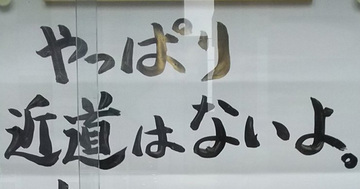 やっぱり
近道はないよ。